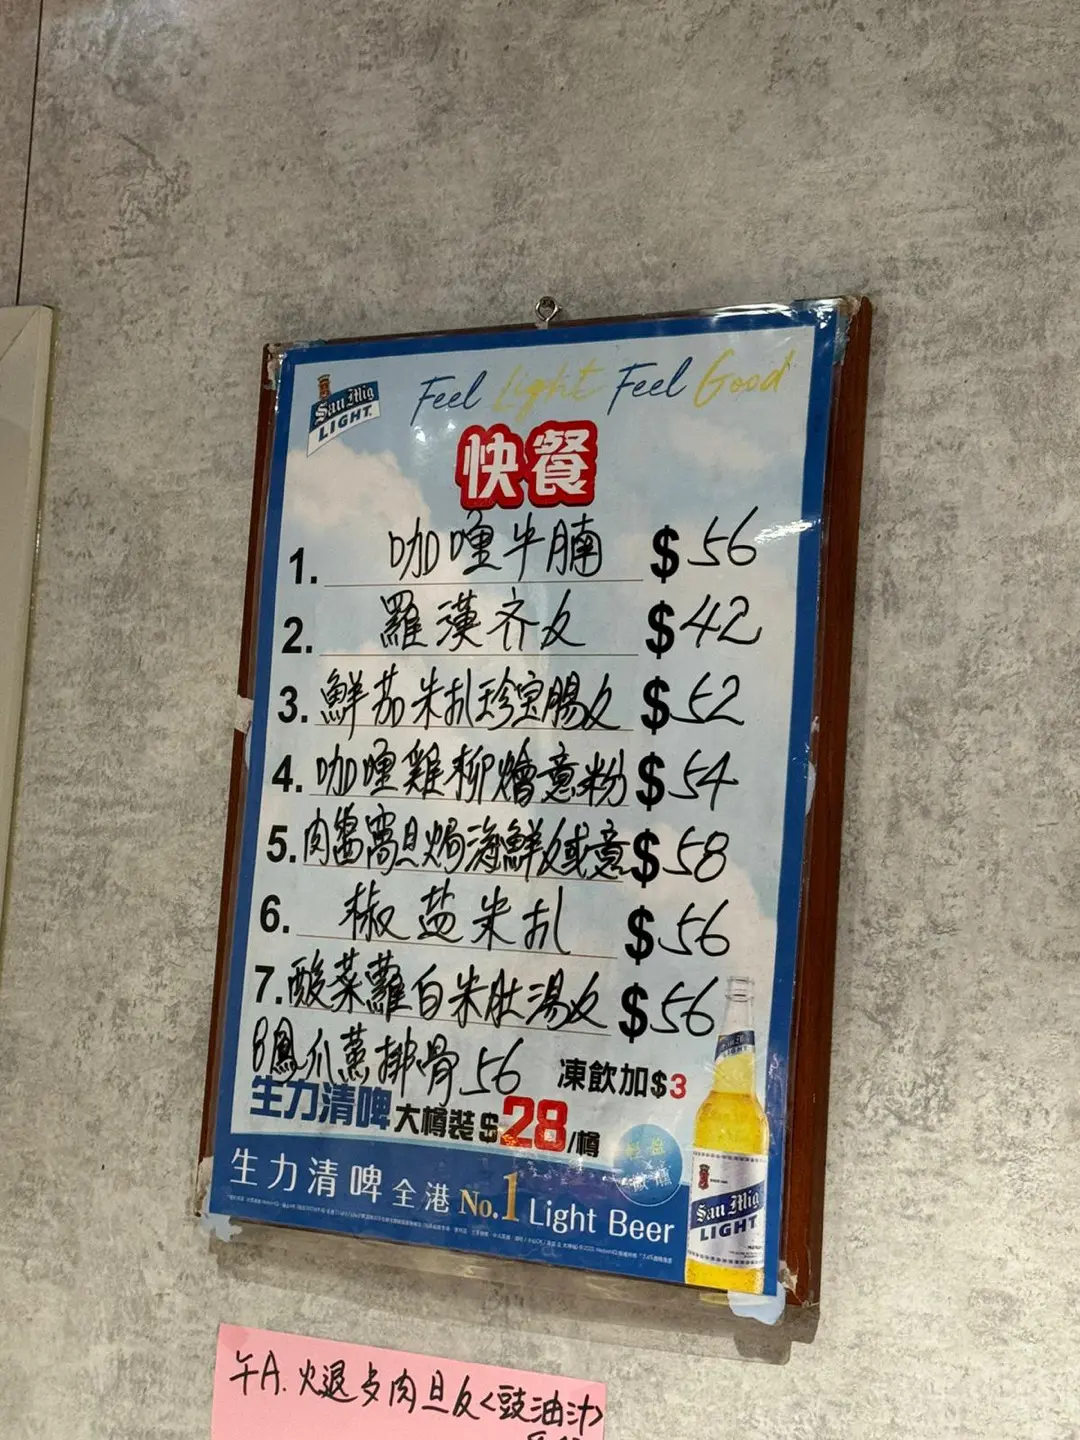 San Mig
LIGHT
Feel Light Feel Good
快餐
1. 咖喱牛腩 $56
2. 羅漢齐反 $42
3. 鮮茄朱扒珍宝腸反 $52
4. 咖喱雞柳燴意粉 $54
5. 肉醬窩旦焗海鮮反或意 $58
6. 椒盐朱扒 $56
7. 酸菜蘿白朱肚湯反 $56
8鳳爪蒸排骨 56
凍飲加$3
生力清啤 大樽裝 $28/樽
生力清啤全港No.1 Light Beer
San Mig
LIGHT
午A. 火退歺肉旦反<豉油汁>